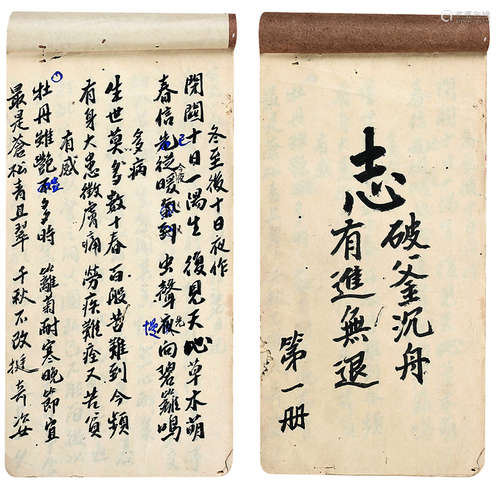 志
破釜沉舟
有進無退
第一册
冬至後十日夜作
閉關十日一陽生 復見天心草木萌
春信已從暖氣到 虫聲先向碧籬鳴
多病
生世莫多數十春 百般苦難到今頻
有身大患微膚痛 勞疾難痊又告貧
有感
牡丹雖艷多時 籬菊耐寒晚節宜
最是蒼松青且翠 千秋不改挺奇姿